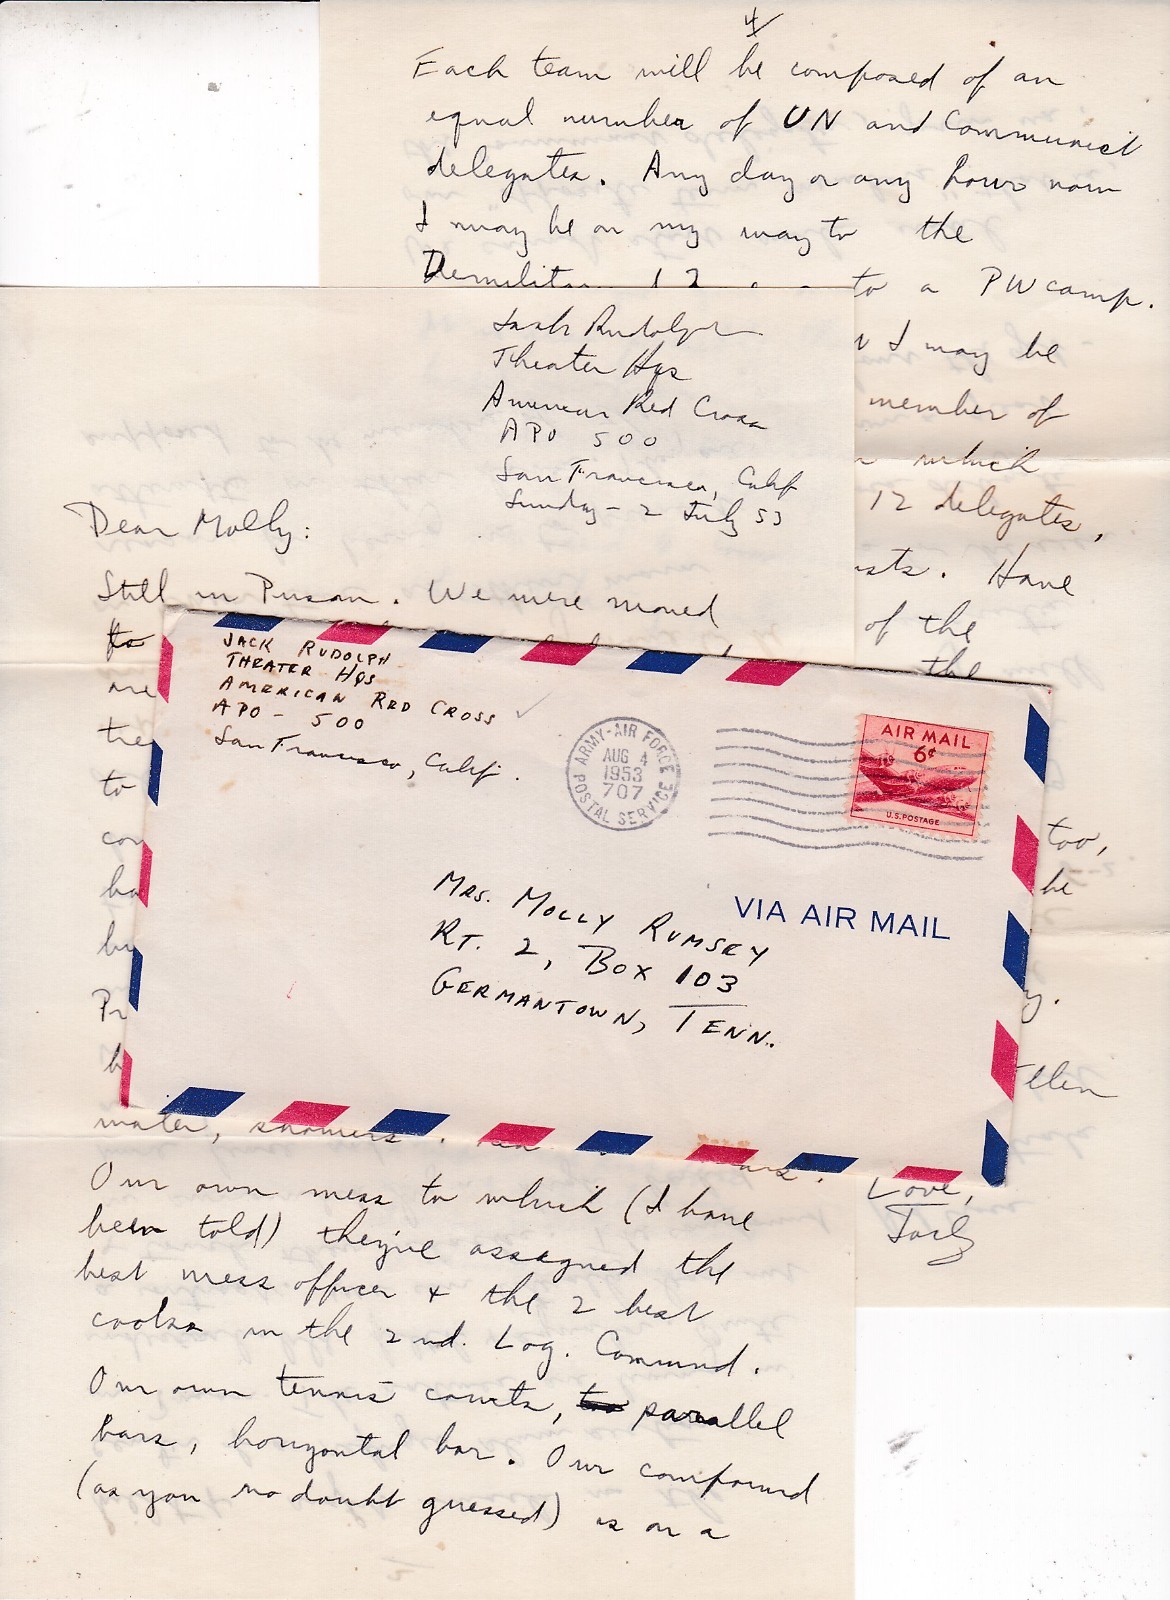 4
Each team will be composed of an
equal number of UN and Communist
delegates. Any day or any hour now
I may be on my way to the
to a PW camp.
I may be
member of
which
12 delegates,
Have
of the
the
too,
be
Love,
Jack
Jack Rudolph
Theater Hqs
American Red Cross
APO 500
San Francisco, Calif
Sunday - 2 July 53
Dear Molly:
Still in Pusan. We were moved
to
water, showers.
Our own mess to which (I have
been told) they've assigned the
best mess officer + the 2 best
cooks in the 2nd. Log. Command.
Our own tennis courts, parallel
bars, horizontal bar. Our compound
(as you no doubt guessed) is on a
JACK RUDOLPH
THEATER HQS
AMERICAN RED CROSS
APO - 500
San Francisco, Calif.
ARMY-AIR FORCE
AUG 4
1953
707
POSTAL SERVICE
AIR MAIL
6¢
U.S. POSTAGE
MRS. MOLLY RUMSEY
RT. 2, BOX 103
GERMANTOWN, TENN.
VIA AIR MAIL